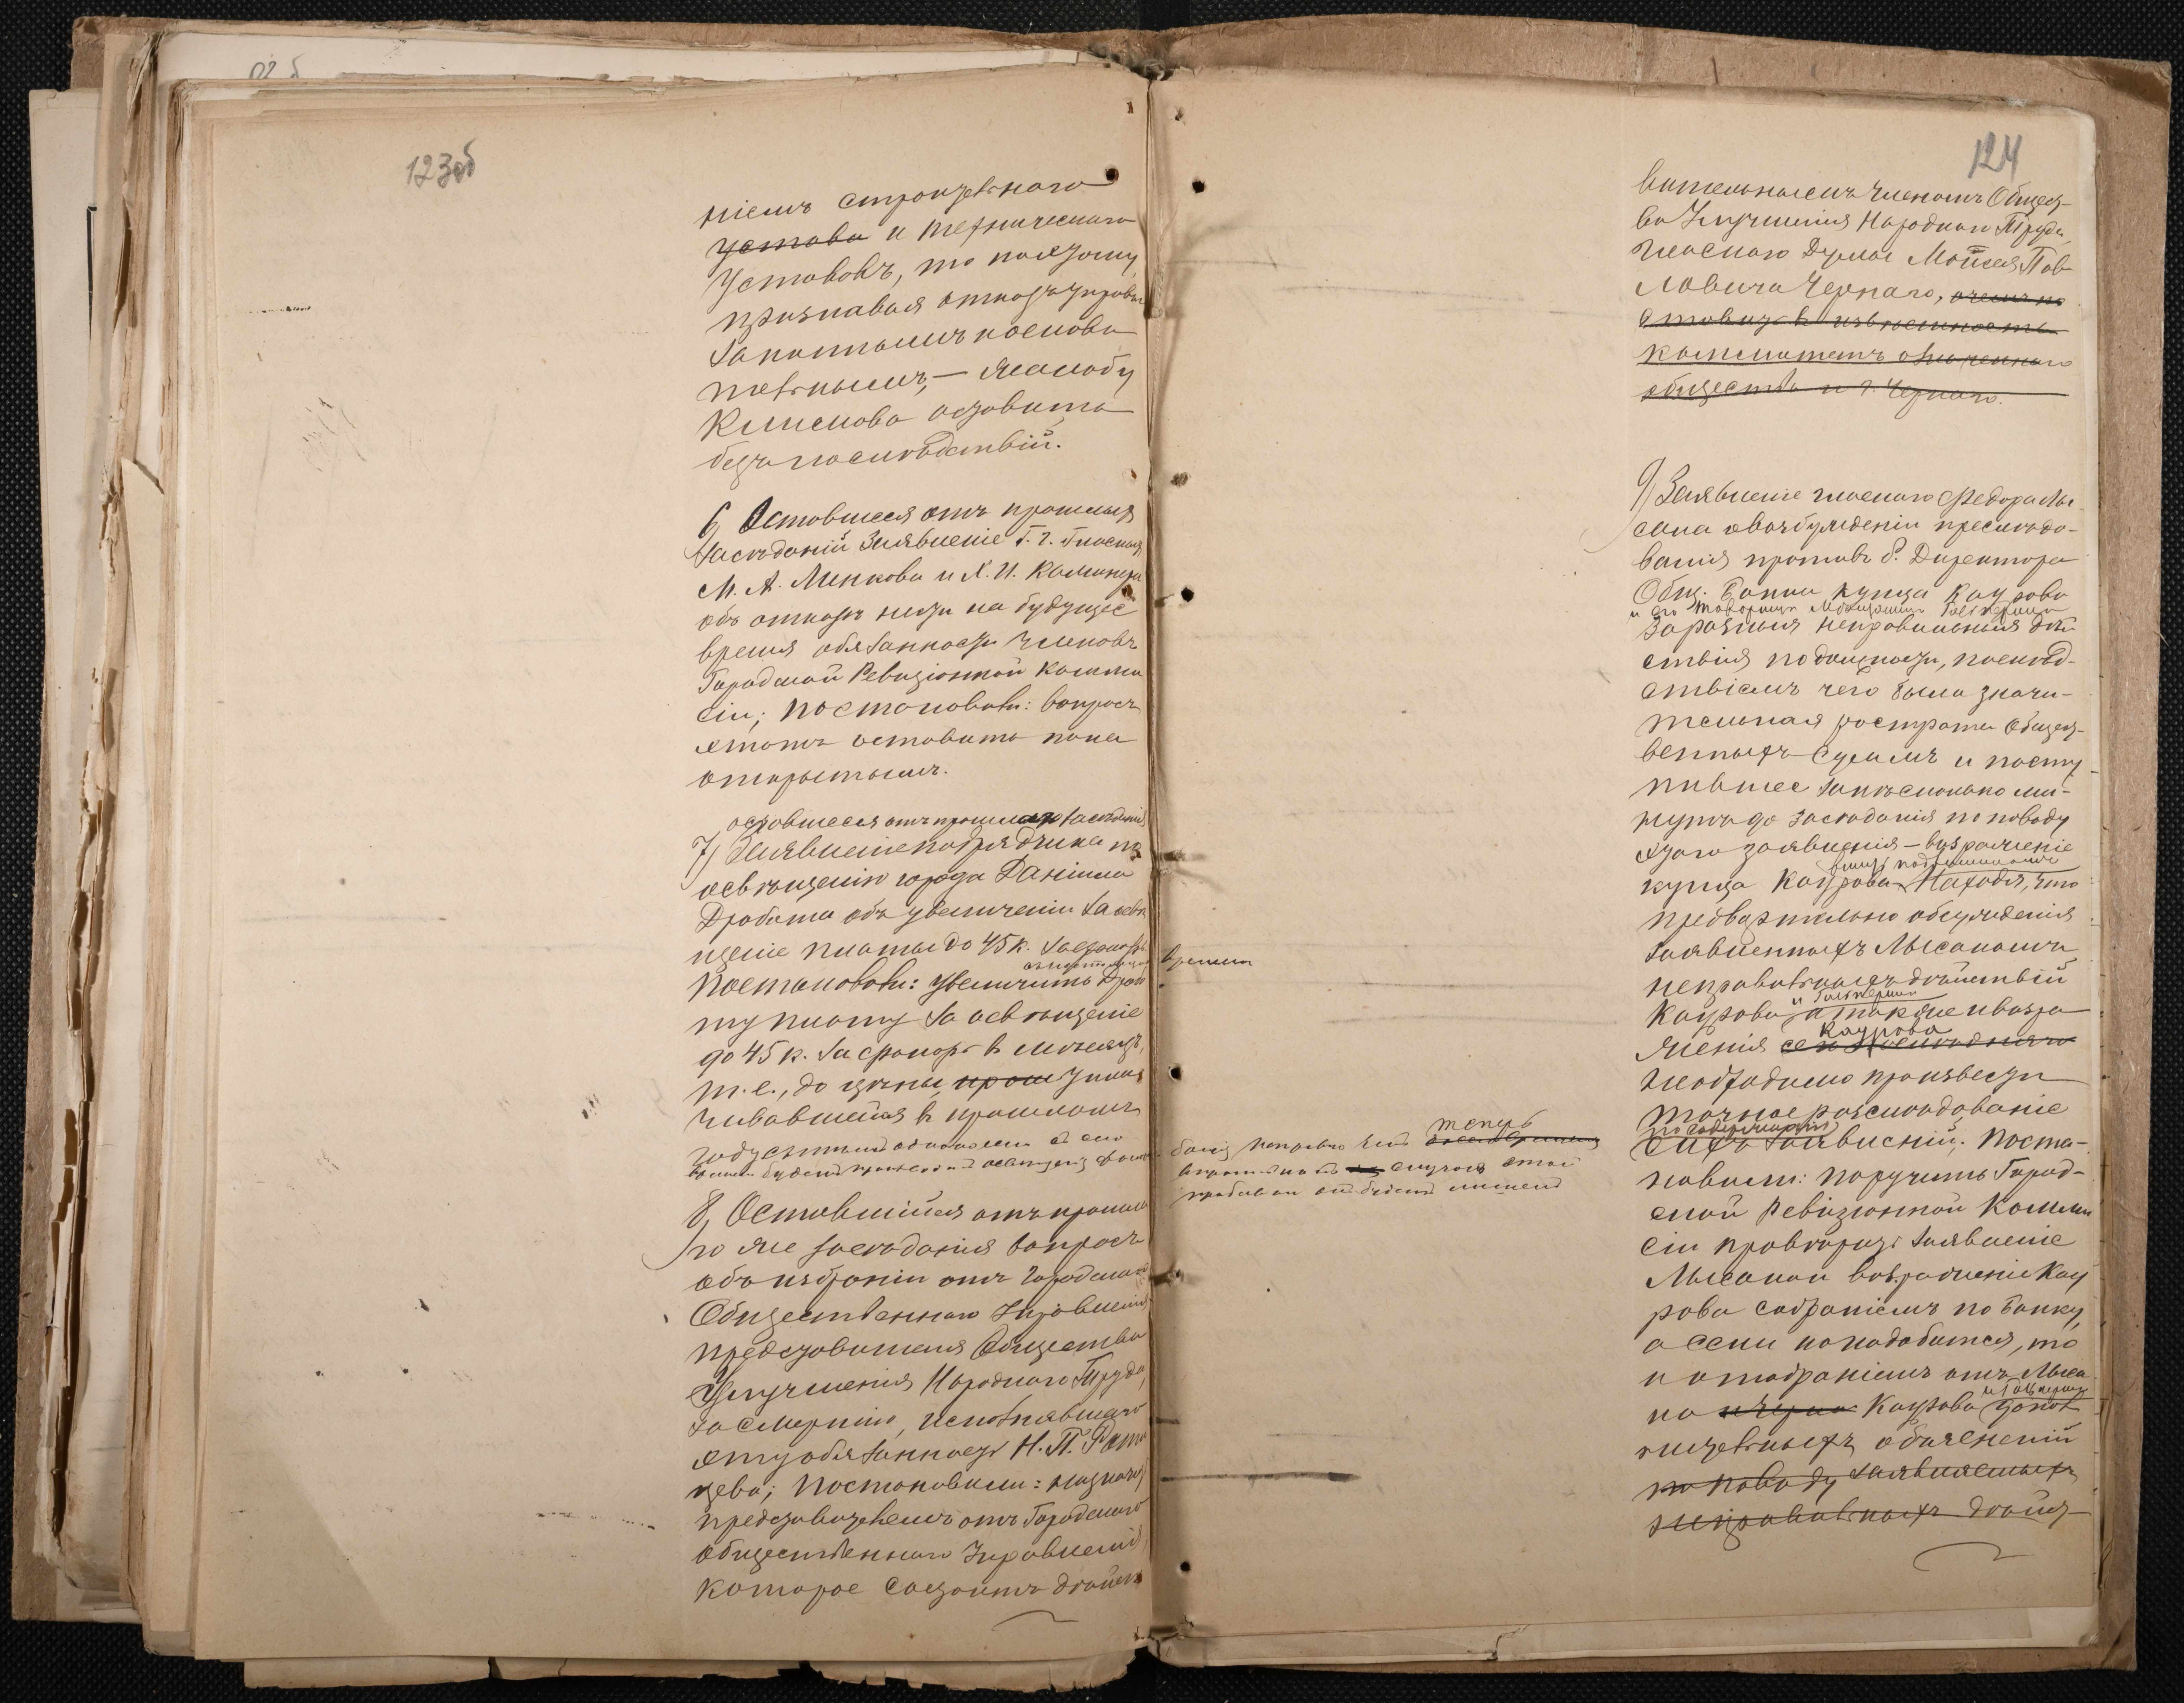 123об
ніемъ строительнаго
устава и техническаго
Уставовъ, то поэтому
признавая отказъ управы
законнымъ и основа
тельнымъ, — жалобу
Климова оставить
безъ послѣдствій.
6, Оставшееся отъ прошлыхъ
засѣданій Заявленіе Г. г. Гласныхъ
М. А. Линкова и Х. И. Каминера
объ отказѣ нести на будущее
время обязанности Членовъ
Городской Ревизіонной Комми
сіи; Постановили: вопросъ
этотъ оставить пока
открытымъ.
оставшееся отъ прошлаго засѣданія
7, Заявленіе подрядчика по
освѣщенію города Даніила
Дробата объ увеличеніи за освѣ
щеніе платы до 45 к. за фонарь.
съ настоящаго времени
Постановили: увеличить Дроба
ту плату за освѣщеніе
до 45 к. за фонарь въ мѣсяцъ,
т. е., до цѣны, прош упла
чивавшейся въ прошломъ
году съ тѣмъ
теперь
8, Оставшійся отъ прошла
го же засѣданія вопросъ
объ избраніи отъ Городскаго
Общественнаго Управленія
представителя Общества
Улучшенія Народнаго Труда,
за смертію, исполнявшаго
эту обязанность Н. П.
цева; Постановили: назначить
представителемъ отъ Городскаго
общественнаго Управленія
которое состоитъ дѣйст
124
вительнымъ Членомъ Общест-
ва Улучшенія Народнаго Труда,
гласнаго Думы Моисея Пав
ловича Чернаго, о чемъ по
ставить въ извѣстность
комитетъ означеннаго
общества и г. Чернаго.
9, Заявленіе гласнаго Федора Лы
сана о возбужденіи преслѣдо-
ванія противъ б. Директора
Общ. Банка купца Каурова
и его товарища
за разныя неправильныя дѣй
ствія по должности, послѣд-
ствіемъ чего была значи-
тельная растрата Общест-
венныхъ суммъ и посту-
пившее за нѣсколько ми-
нутъ до засѣданія по поводу
этого заявленія — возраженіе
купца Каурова Находя, что
предварительно обсужденія
заявленныхъ Лысаномъ
неправильныхъ дѣйствій
Каурова а также и возра
женія Каурова
необходимо произвести
точное разслѣдованіе
по содержанію
сихъ заявленій; Поста-
новили: поручить Город-
ской Ревизіонной Комми
сіи провѣрить заявленіе
Лысана и возраженіе Кау
рова собраніемъ по банку,
а если понадобится, то
и отобраніемъ отъ Лыса
на и Черна Каурова допол
нительныхъ объясненій
по поводу заявляемыхъ
неправильныхъ дѣйст